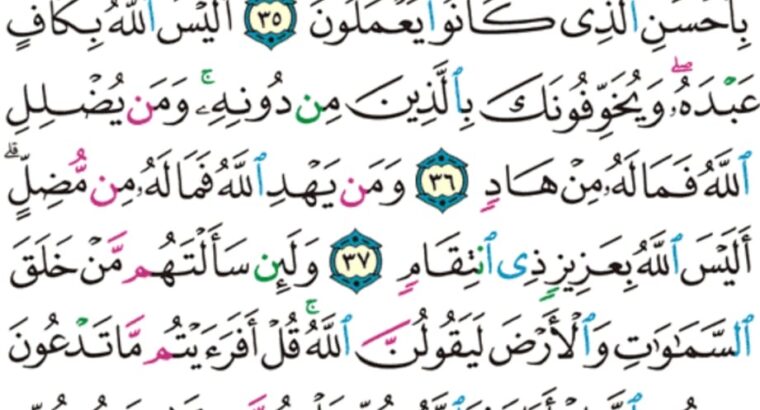 بِأَحۡسَنِ ٱلَّذِي كَانُواْ يَعۡمَلُونَ ٣٥ أَلَيۡسَ ٱللَّهُ بِكَافٍ
عَبۡدَهُۥۖ وَيُخَوِّفُونَكَ بِٱلَّذِينَ مِن دُونِهِۦۚ وَمَن يُضۡلِلِ
ٱللَّهُ فَمَا لَهُۥ مِنۡ هَادٖ ٣٦ وَمَن يَهۡدِ ٱللَّهُ فَمَا لَهُۥ مِن مُّضِلٍّۗ
أَلَيۡسَ ٱللَّهُ بِعَزِيزٖ ذِي ٱنتِقَامٖ ٣٧ وَلَئِن سَأَلۡتَهُم مَّنۡ خَلَقَ
ٱلسَّمَٰوَٰتِ وَٱلۡأَرۡضَ لَيَقُولُنَّ ٱللَّهُۚ قُلۡ أَفَرَءَيۡتُم مَّا تَدۡعُونَ